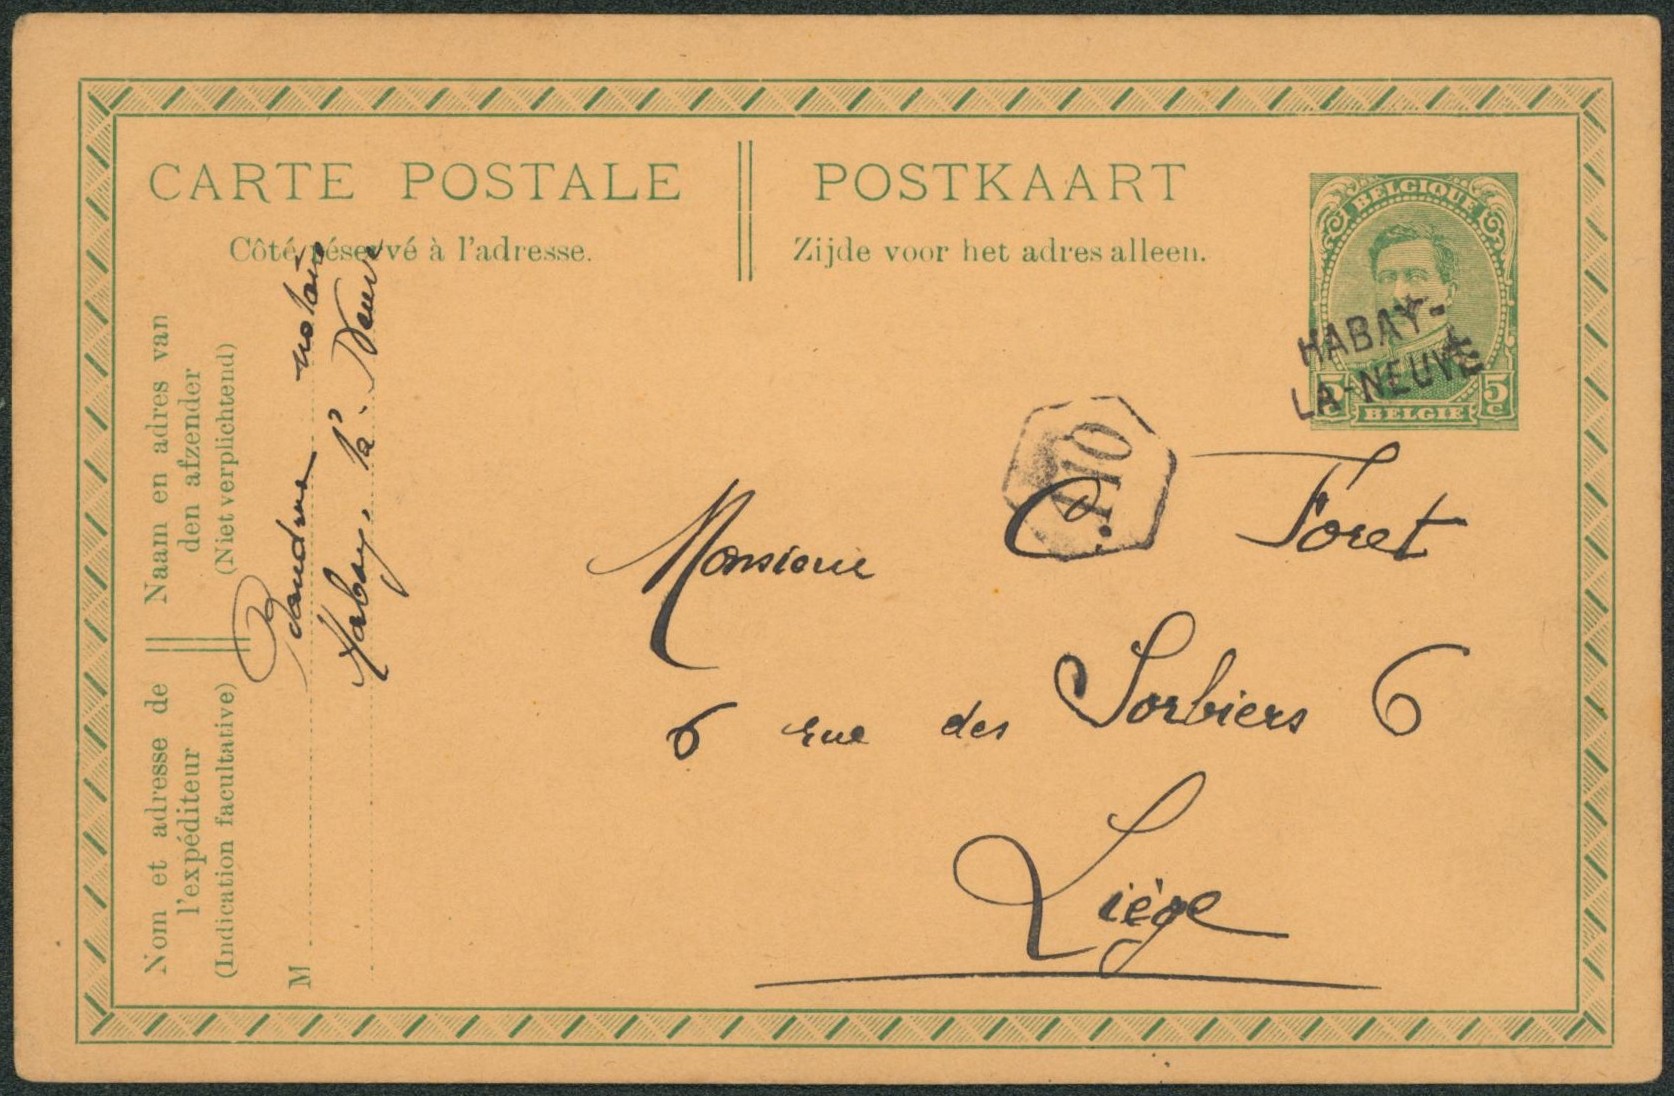 CARTE POSTALE
Côté réservé à l'adresse.
POSTKAART
Zijde voor het adres alleen.
BELGIQUE
5c 5c
BELGIE
HABAY-
LA-NEUVE
Naam en adres van
den afzender
(Niet verplichtend)
Nom et adresse de
l'expéditeur
(Indication facultative)
M
notaire
Habay. la. Neuve
Monsieur C. Foret
6 rue des Sorbiers 6
Liège